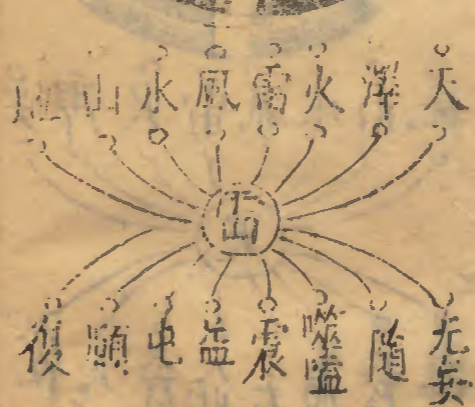 天澤火雷風水山地
雷
无妄隨噬嗑震益屯頤復